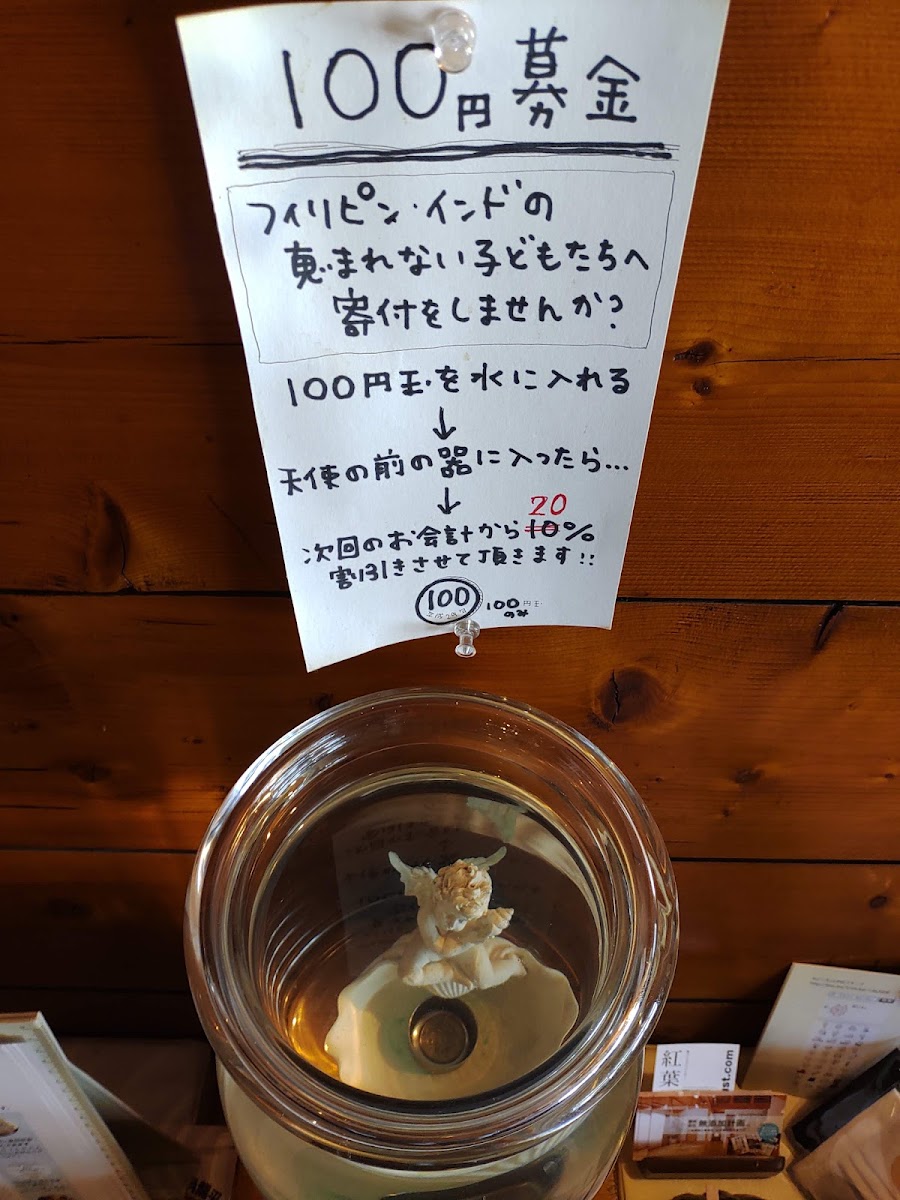 100円募金
フィリピン・インドの
恵まれない子どもたちへ
寄付をしませんか?
100円玉を水に入れる
↓
天使の前の器に入ったら...
↓
20
次回のお会計から10%
割引きさせて頂きます!!
100
100円玉
のみ
紅葉
ust.com
無添加計画